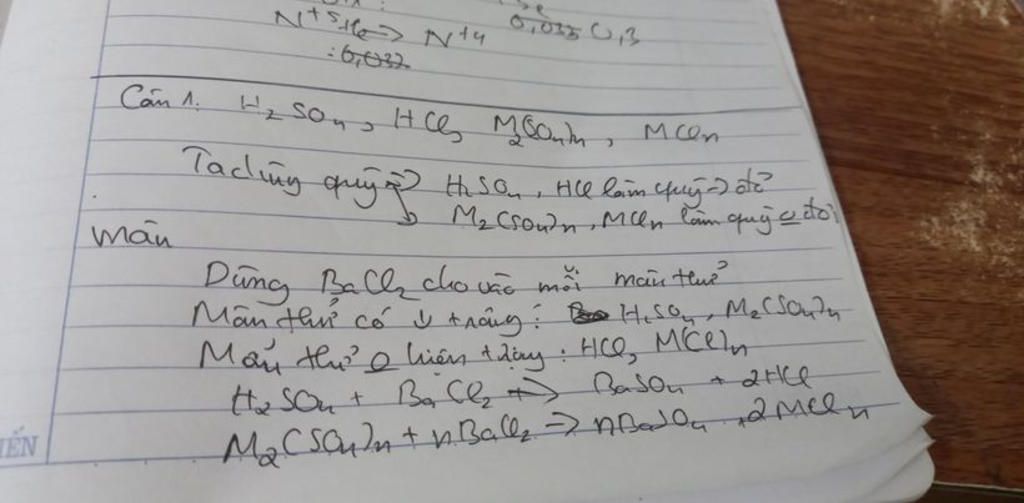 N⁺⁵ +1e → N⁺⁴ 0,035 0,3
: 0,032
Câu 1. H₂SO₄, HCl, M₂(SO₄)n, MCln
Ta dùng quỳ → H₂SO₄, HCl làm quỳ → đỏ
↳ M₂(SO₄)n, MCln làm quỳ o đổi
màu
Dùng BaCl₂ cho vào mỗi mẫu thử
Mẫu thử có ↓ trắng: H₂SO₄, M₂(SO₄)n
Mẫu thử o hiện tượng: HCl, M(Cl)n
H₂SO₄ + BaCl₂ → BaSO₄ + 2HCl
M₂(SO₄)n + nBaCl₂ → nBaSO₄ + 2MCln
ẾN